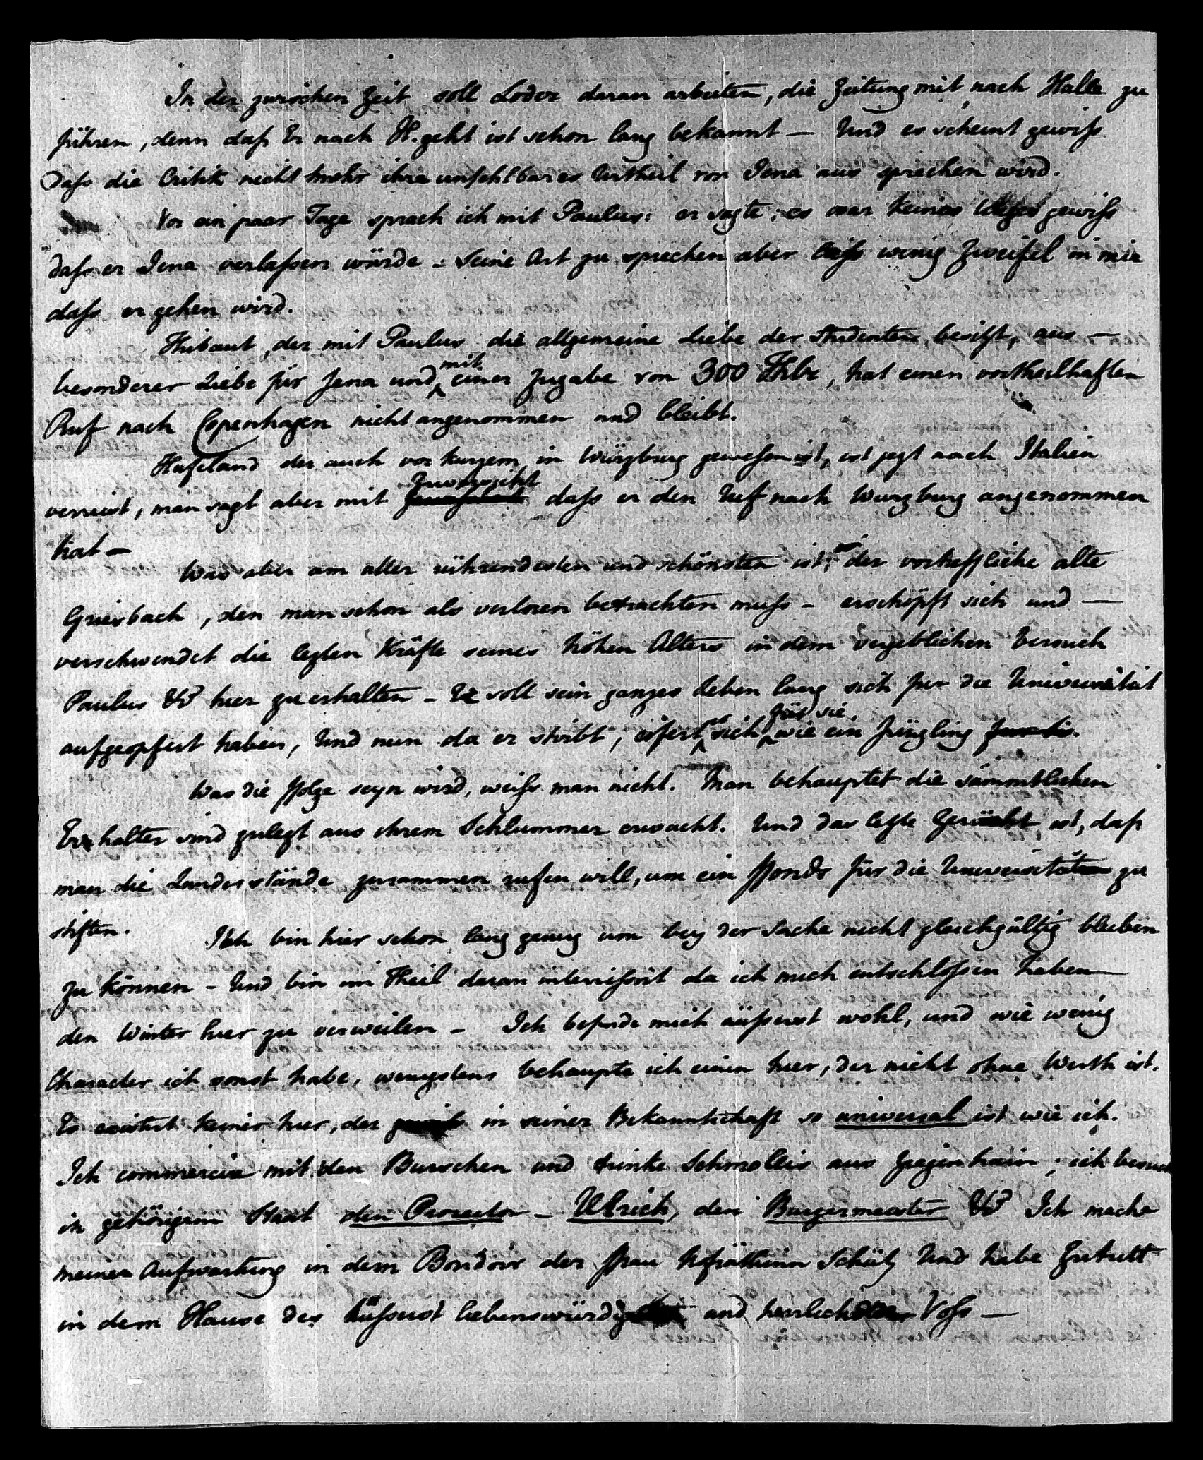 In der zwischen Zeit soll Loder daran arbeiten, die Zeitung mit nach Halle zu
führen, denn daß Er nach H. geht ist schon lang bekannt — Und es scheint gewiß
daß die Critik nicht mehr ihre unfehlbares Urtheil von Jena aus sprechen wird.
Vor ein paar Tage sprach ich mit Paulus: er sagte, es war keines Weges gewiß
daß er Jena verlaßen würde – Seine Art zu sprechen aber ließ wenig Zweifel in mir
daß er gehen wird.
Thibaut, der mit Paulus die allgemeine Liebe der Studenten besitzt, aus —
besonderer Liebe für Jena und mit einer Zugabe von 300 Thlr, hat einen vortheilhaften
Ruf nach Copenhagen nicht angenommen und bleibt.
Hufeland der auch vor kurzem in Würzburg gewesen ist, ist jezt nach Italien
verreist, man sagt aber mit Zuversicht daß er den Ruf nach Wurzburg angenommen
hat —
Was aber am aller rührendesten und schönsten ist, der vortreffliche alte
Griesbach, den man schon als verloren betrachten muß – erschöpft sich und —
verschwendet die lezten Kräfte seines hohen Alters in dem vergeblichen Versuch
Paulus &c hier zu erhalten – Er soll sein ganzes Leben lang sich für die Universität
aufgeopfert haben, Und nun da er stirbt, eifert er sich für sie, wie ein Jüngling.
Was die Folge seyn wird, weiß man nicht. Man behauptet die sämmtlichen
Erhalter sind zulezt aus ihrem Schlummer erwacht. Und das lezte Gerücht ist, daß
man die Landesstände zusammen rufen will, um ein Fonds für die Universitäten zu
stiften.
Ich bin hier schon lang genug um bey der Sache nicht gleichgültig bleiben
zu können – Und bin im Theil daran interrissirt da ich mich entschloßen haben
den Winter hier zu verweilen – Ich befinde mich äußerst wohl, und wie wenig
Character ich sonst habe, wenigstens behaupte ich einen hier, der nicht ohne Werth ist.
Es existirt keiner hier, der in seiner Bekanntschaft so universal ist wie ich.
Ich commercire mit den Burschen und trinke Schmollis aus Ziegenhain, ich besuche
in gehörigem Staat den Prorector – Ulrich, den Burgermeister &c Ich mache
meinen Aufwartung in dem Boudoir der Frau Hofräthinn Schütz Und habe Zutritt
in dem Hause des äußerst liebenswürdig und herrlichen Voß —